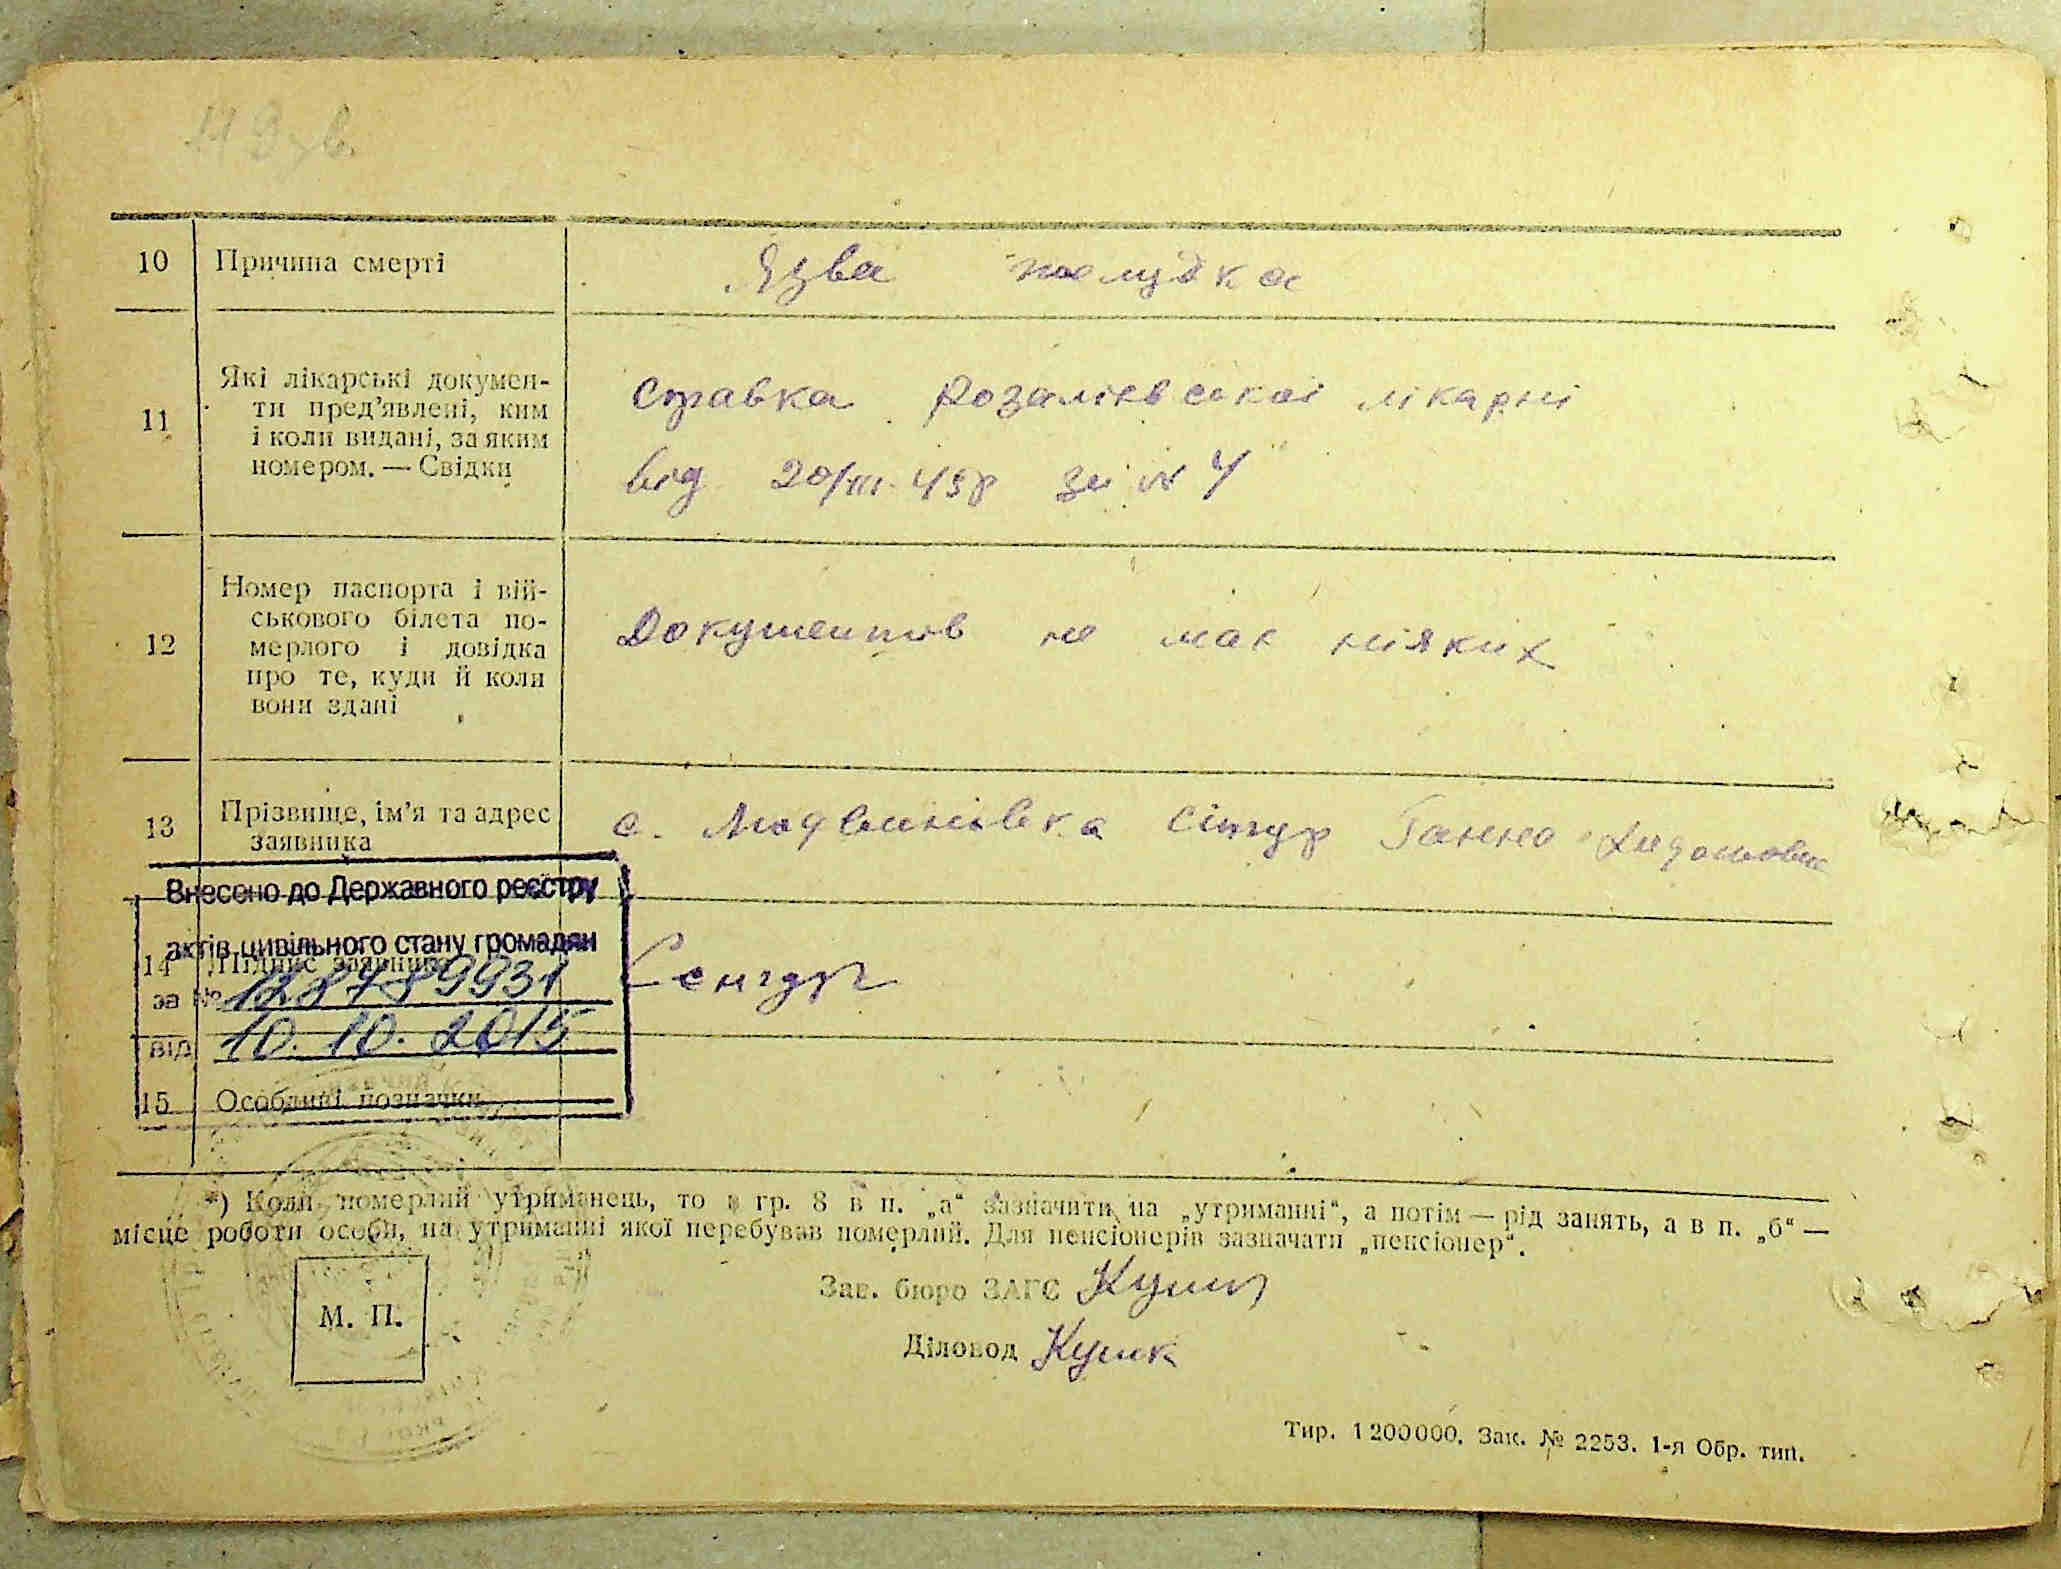 10 Причина смерті Язва желудка
11 Які лікарські докумен-
ти пред’явлені, ким
і коли видані, за яким
номером. — Свідки
Справка Розаліевської лікарні
від 20/III-45р за № 4
12 Номер паспорта і вій-
ськового білета по-
мерлого і довідка
про те, куди й коли
вони здані
Документів не має ніяких
13 Прізвище, ім’я та адрес
заявника
с. Ганна
Внесено до Державного реєстру
актів цивільного стану громадян
14 Підпис заявника
за №
від 10.10.2015
15 Особливі позначки
*) Коли померлий утриманець, то в гр. 8 в п. „а“ зазначити на „утриманні“, а потім — рід занять, а в п. „б“ —
місце роботи особи, на утриманні якої перебував померлий. Для пенсіонерів зазначати „пенсіонер“.
Зав. бюро ЗАГС
М. П.
Діловод
Тир. 1 200 000. Зак. № 2253. 1-я Обр. тип.